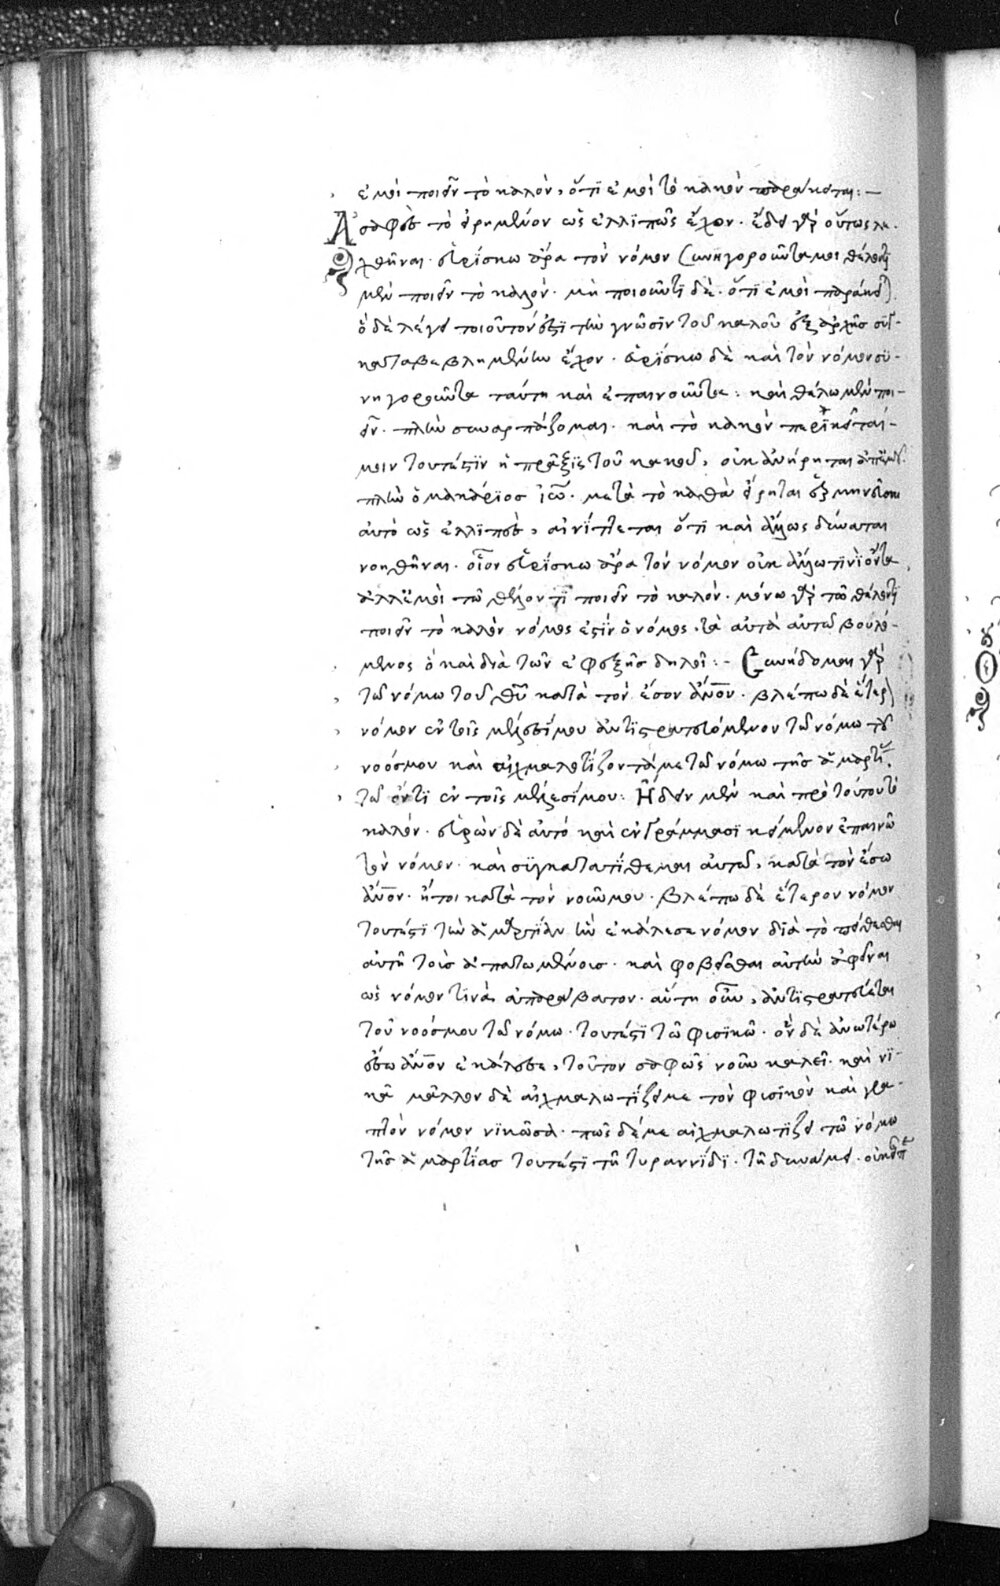 ἐμοὶ ποιεῖν τὸ καλὸν, ὅτι ἐμοὶ τὸ κακὸν παράκειται:-
Ἀσαφὲς τὸ εἰρημένον ὡς ἐλλιπῶς ἔχον. ἔδει γὰρ οὕτως λε-
χθῆναι. εὑρίσκω ἄρα τὸν νόμον συνηγοροῦντα μοι θέλοντι
μὲν ποιεῖν τὸ καλόν. μὴ ποιοῦντι δὲ. ὅτι ἐμοὶ παράκει
ὁ δὲ λέγει τοιοῦτόν ἐστι τὴν γνῶσιν τοῦ καλοῦ ἐξ ἀρχῆς συγ-
καταβεβλημένην ἔχον. εὑρίσκω δὲ καὶ τὸν νόμον συ-
νηγοροῦντα ταύτη καὶ ἐπαινοῦντα: καὶ θέλω μὲν ποι-
εῖν. πλὴν συναρπάζομαι. καὶ τὸ κακὸν παράκειταί
μοιν τουτέστιν ἡ πρᾶξις τοῦ κακοῦ, οὐκ ἀνήρηται ἀπ' ἐμοῦ.
πλὴν ὁ μακάριος ἰω. μετὰ τὸ καθὰ εἴρηται ἐξ
αὐτὸ ὡς ἐλλιπὲς, αἰνίττεται ὅτι καὶ ἄλλως δύναται
νοηθῆναι. οἷον εὑρίσκω ἄρα τὸν νόμον οὐκ ἄλλω τινὶ ὄντα
ἀλλ' ἐμοὶ τῶ θέλοντι ποιεῖν τὸ καλόν. μόνω γὰρ τῶ θέλοντι
ποιεῖν τὸ καλὸν νόμος ἐστὶν ὁ νόμος. τὰ αὐτὰ αὐτῶ βουλό-
μενος ὁ καὶ διὰ τῶν ἐφεξῆς δηλοῖ:- Συνήδομαι γὰρ
τῶ νόμω τοῦ θυ κατὰ τὸν ἔσον ἀνον. βλέπω δὲ ἕτερ
νόμον ἐν τοῖς μέλεσί μου ἀντιστρατευόμενον τῶ νόμω τοῦ
νοόσμου καὶ αἰχμαλωτίζοντά με τῶ νόμω τῆς ἁμαρτί
τῶ ὄντι ἐν τοῖς μέλεσί μου: Ἤδειν μὲν καὶ πρὸ τούτου τὸ
καλόν. εὑρὼν δὲ αὐτὸ καὶ ἐν γράμμασι κείμενον ἐπαινῶ
τὸν νόμον. καὶ συγκατατίθεμαι αὐτῶ, κατὰ τὸν ἔσω
ἀνον. ἤτοι κατὰ τὸν νοῦν μου. βλέπω δὲ ἕτερον νόμον
τουτέστι τὴν ἁμαρτίαν ἣν ἐκάλεσε νόμον διὰ τὸ πείθεσθαι
αὐτῆ τοὺς ἀπατωμένους. καὶ φοβεῖσθαι αὐτὴν ἀφεῖναι
ὡς νόμον τινὰ ἀπαράβατον. αὕτη οὖν, ἀντιστρατεύεται
τοῦ νοόσμου τῶ νόμω. τουτέστι τῶ φυσικῶ. ὃν δὲ ἀνωτέρω
ἔσω ἀνον ἐκάλεσε, τοῦτον σαφῶς νοῦν καλεῖ. καὶ νι-
κᾶ μᾶλλον δὲ αἰχμαλωτίζει με τὸν φυσικὸν καὶ γρα-
πτὸν νόμον νικῶσα. πῶς δέ με αἰχμαλωτίζει τῶ νόμω
τῆς ἁμαρτίας τουτέστι τῆ τυραννίδι. τῆ δυνάμει.